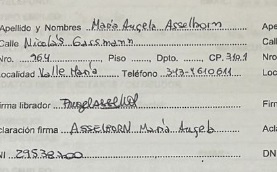 Apellido y Nombres María Angela Asselborn Ape
Calle Nicolás Gassmann Call
Nro. 964 Piso Dpto. CP. 3101 Nro
Localidad Valle María Teléfono 343-4610611 Loc
irma librador Firm
claración firma ASSELBORN María Angela Acla
NI 29538200 DN